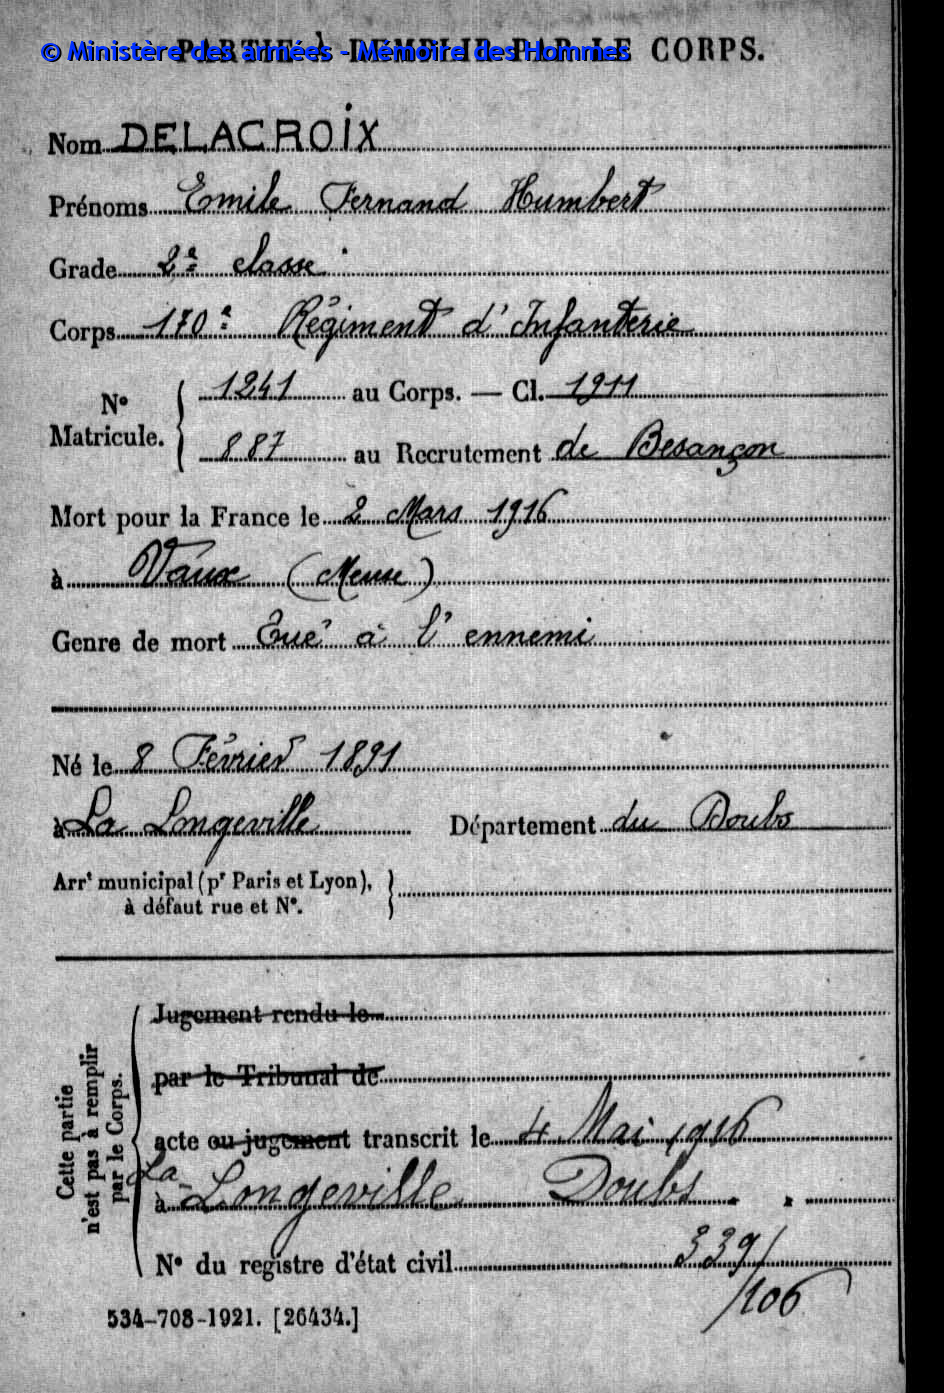 PARTIE À REMPLIR PAR LE CORPS.
© Ministère des armées - Mémoire des Hommes
Nom DELACROIX
Prénoms Emile Fernand Humbert
Grade 2e classe
Corps 170e Régiment d'Infanterie
N° Matricule. { 1241 au Corps. — Cl. 1911
887 au Recrutement de Besançon
Mort pour la France le 2 Mars 1916
à Vaux (Meuse)
Genre de mort Tué à l'ennemi
Né le 8 Février 1891
à La Longeville Département du Doubs
Arrt municipal (pr Paris et Lyon), }
à défaut rue et N°.
Cette partie
n'est pas à remplir
par le Corps.
Jugement rendu le
par le Tribunal de
acte ou jugement transcrit le 4 Mai 1916
à La Longeville Doubs
N° du registre d'état civil 339/
/106
534-708-1921. [26434.]